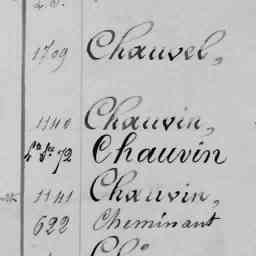 1709 Chauvel,
1140 Chauvin,
72 Chauvin
1141 Chauvin,
622 Cheminant